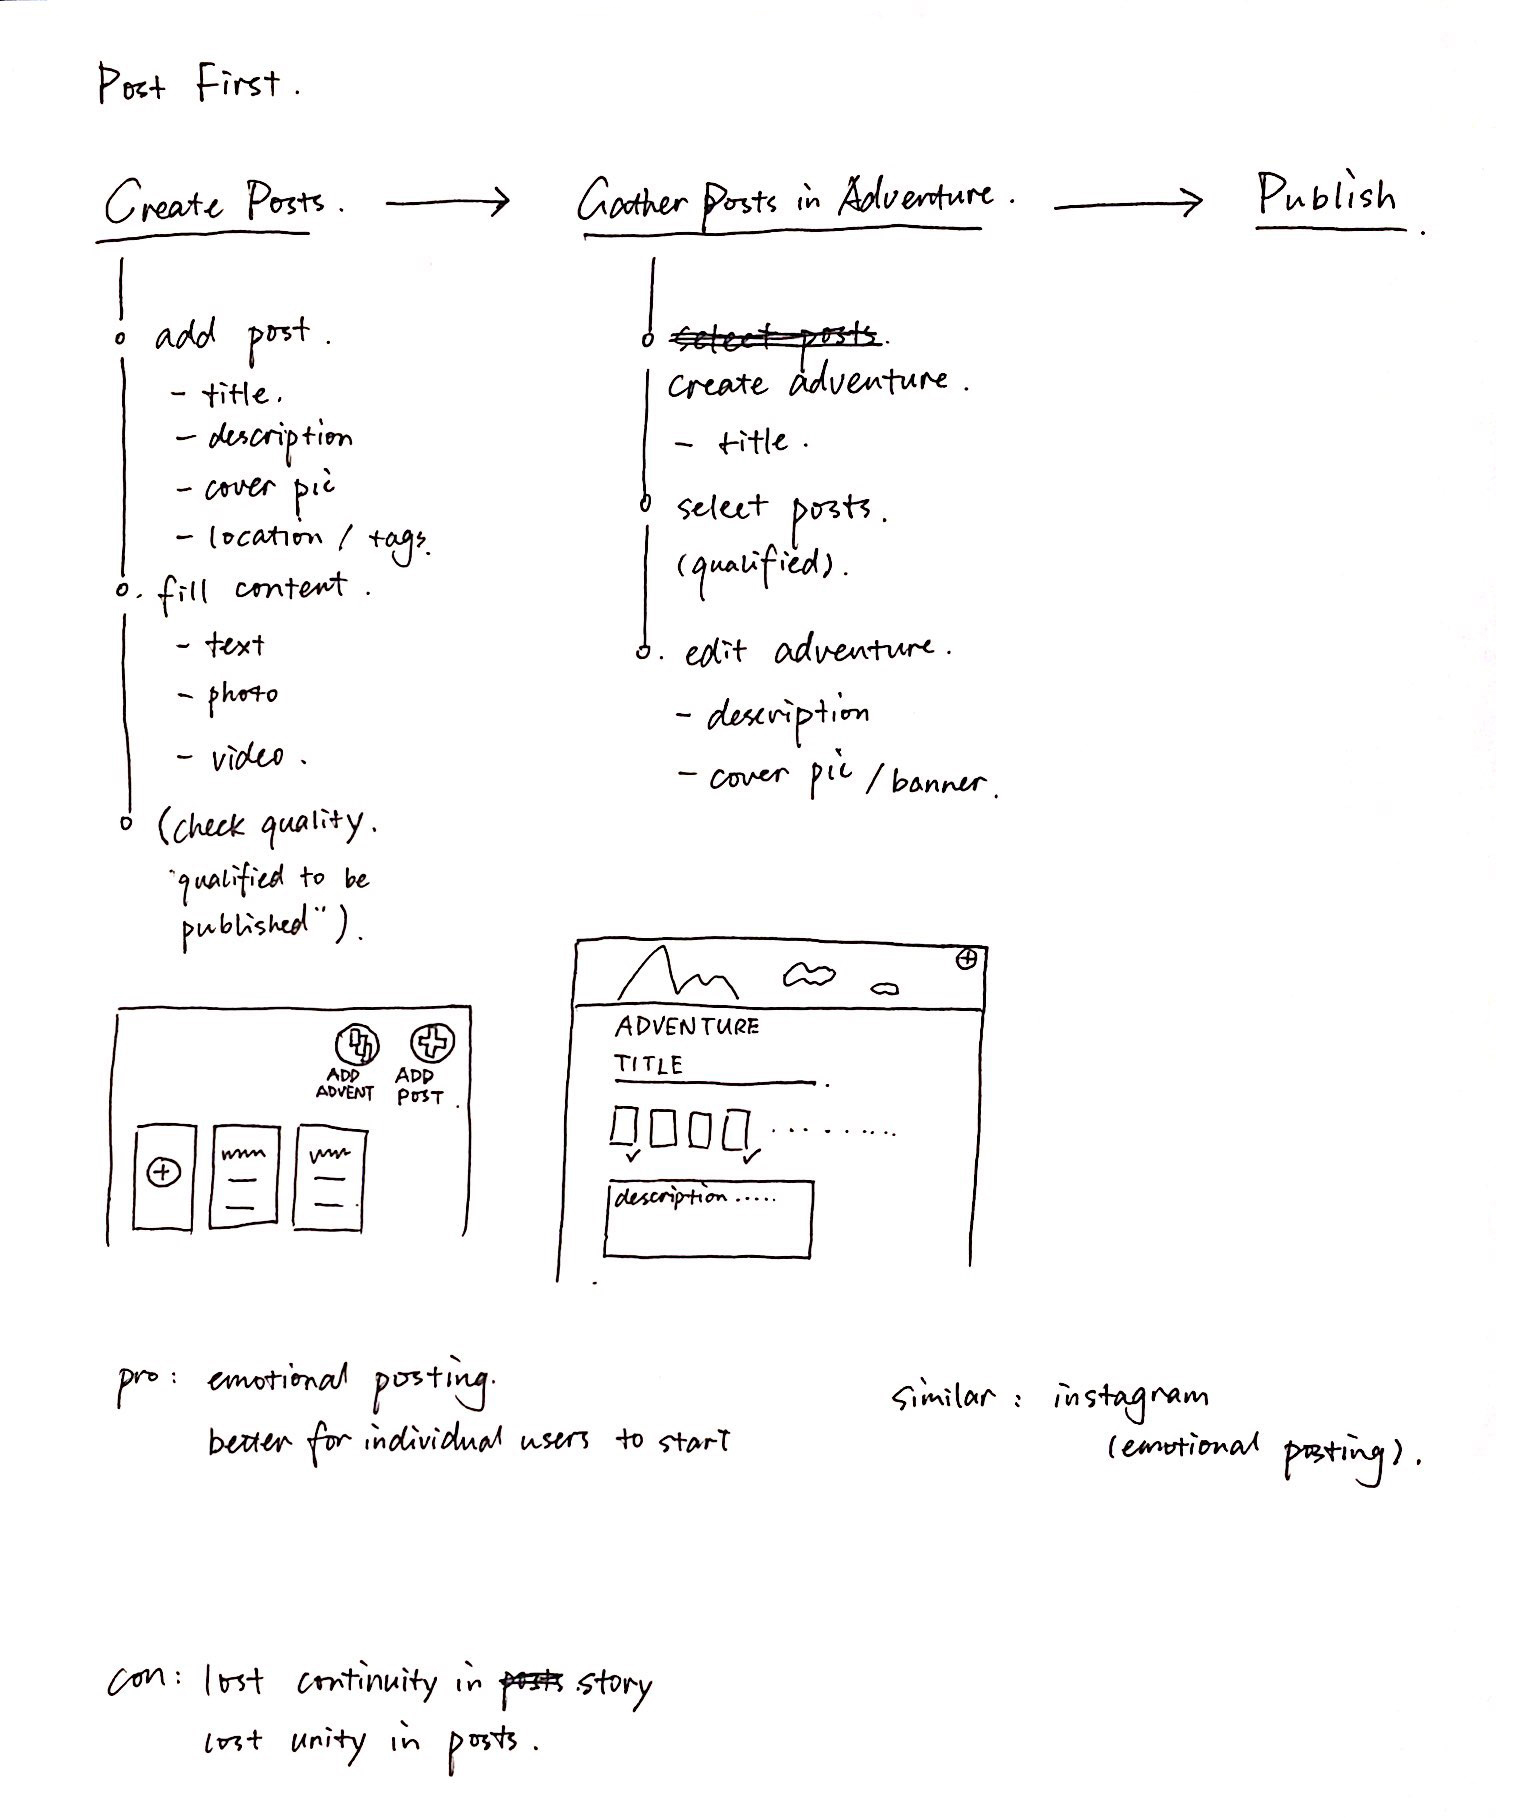 Post First.
Create Posts. → Gather Posts in Adventure. → Publish.
add post.
- title.
- description
- cover pic
- location / tags.
fill content.
- text
- photo
- video.
(check quality.
"qualified to be
published").
select posts.
create adventure.
- title.
select posts.
(qualified).
edit adventure.
- description
- cover pic / banner.
ADD
ADVENT
ADD
POST.
ADVENTURE
TITLE
description .....
pro: emotional posting.
better for individual users to start
similar: instagram
(emotional posting).
con: lost continuity in posts story
lost unity in posts.